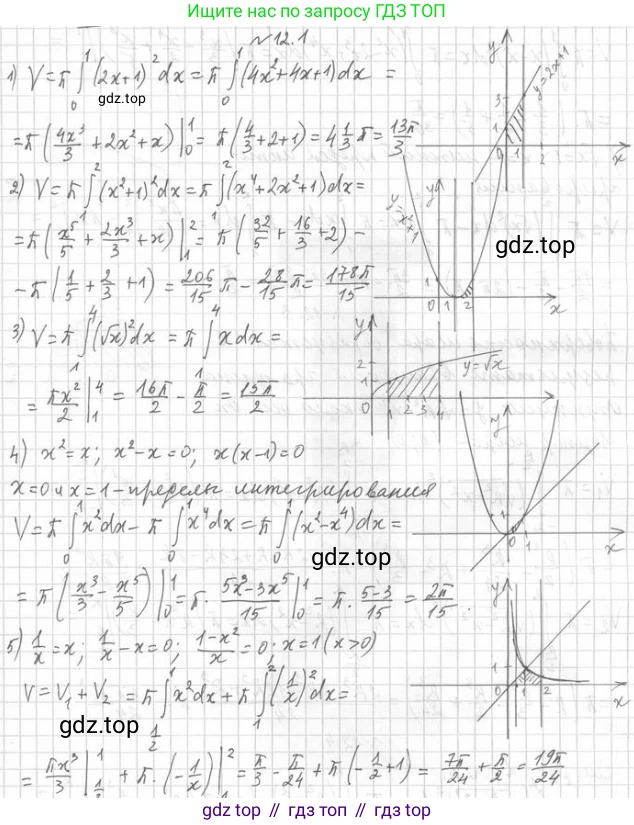 Ищите нас по запросу ГДЗ ТОП
№12.1
1) V = π ∫₀¹ (2x+1)² dx = π ∫₀¹ (4x²+4x+1)dx =
= π (4x³/3 + 2x² + x) |₀¹ = π(4/3+2+1) = 4 1/3 π = 13π/3
2) V = π ∫₁² (x²+1)² dx = π ∫₁² (x⁴+2x²+1)dx =
= π (x⁵/5 + 2x³/3 + x) |₁² = π (32/5 + 16/3 + 2) -
- π (1/5 + 2/3 + 1) = 206/15 π - 28/15 π = 178π/15
3) V = π ∫₁⁴ (√x)² dx = π ∫₁⁴ x dx =
= πx²/2 |₁⁴ = 16π/2 - π/2 = 15π/2
4) x² = x; x² - x = 0; x(x-1) = 0
x = 0 и x = 1 - пределы интегрирования
V = π ∫₀¹ x² dx - π ∫₀¹ x⁴ dx = π ∫₀¹ (x² - x⁴) dx =
= π (x³/3 - x⁵/5) |₀¹ = π · (5x³ - 3x⁵)/15 |₀¹ = π · (5-3)/15 = 2π/15.
5) 1/x = x; 1/x - x = 0; (1-x²)/x = 0; x = 1 (x > 0)
V = V₁ + V₂ = π ∫_{1/2}^1 x² dx + π ∫₁² (1/x)² dx =
= πx³/3 |_{1/2}^1 + π · (-1/x) |₁² = π/3 - π/24 + π (-1/2 + 1) = 7π/24 + π/2 = 19π/24
y
y = 2x+1
3
1
0 1 2
x
y
y = x²+1
1
0 1 2
x
y
2
1
y = √x
0 1 2 3 4
x
y
1
0 1
x
y
1
0 1 2
x
gdz.top
gdz.top
gdz.top
gdz.top
gdz top // гдз топ // gdz.top